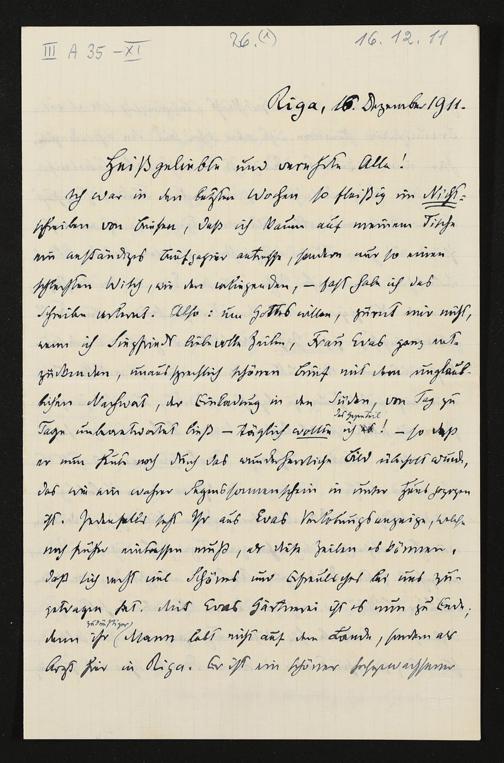 III A 35 – XI
26. (1)
16. 12. 11
Riga, 16. Dezember 1911.
Heißgeliebte und verehrte Alle!
Ich war in den letzten Wochen so fleißig im Nicht-
schreiben von Briefen, daß ich kaum auf meinem Tische
ein anständiges Briefpapier antreffe, sondern nur so einen
schlechten Wisch, wie den vorliegenden, – fast habe ich das
Schreiben verlernt. Also: um Gottes willen, zürnt mir nicht,
wenn ich Siegfrieds liebevolle Zeilen, Frau Evas ganz ent-
zückenden, unaussprechlich schönen Brief mit dem unglaub-
lichen Nachwort, der Einladung in den Süden, von Tag zu
Tage unbeantwortet ließ – täglich wollte ich das Gegenteil! – so daß
er nun heute noch durch das wunderherrliche Bild überholt wurde,
das wie ein wahrer Segenssonnenschein in unser Haus gezogen
ist. Jedenfalls seht Ihr aus Evas Verlobungsanzeige, welche
noch früher eintreffen muß, als diese Zeilen es können,
daß sich recht viel Schönes und Erfreuliches bei uns zu-
getragen hat. Mit Evas Gärtnerei ist es nun zu Ende;
denn ihr (zukünftiger) Mann lebt nicht auf dem Lande, sondern als
Arzt hier in Riga. Er ist ein schöner hochgewachsener